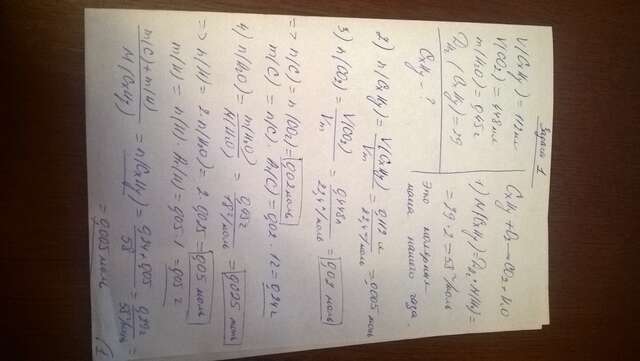 Задача 1
V(CxHy) = 112 мл
V(CO2) = 448 мл
m(H2O) = 0,45 г
D H2 (CxHy) = 29
CxHy - ?
CxHy + O2 → CO2 + H2O
1) M(CxHy) = D H2 · M(H2) =
= 29 · 2 = 58 г/моль
Это молярная
масса нашего газа.
2) n(CxHy) = V(CxHy)/Vm = 0,112 л/22,4 л/моль = 0,005 моль
3) n(CO2) = V(CO2)/Vm = 0,448 л/22,4 л/моль = 0,02 моль
=> n(C) = n(CO2) = 0,02 моль
m(C) = n(C) · Ar(C) = 0,02 · 12 = 0,24 г
4) n(H2O) = m(H2O)/M(H2O) = 0,45 г/18 г/моль = 0,025 моль
=> n(H) = 2n(H2O) = 2 · 0,025 = 0,05 моль
m(H) = n(H) · Ar(H) = 0,05 · 1 = 0,05 г
m(C) + m(H)/M(CxHy) = n(CxHy) = 0,24 + 0,05/58 = 0,29 г/58 г/моль =
= 0,005 моль